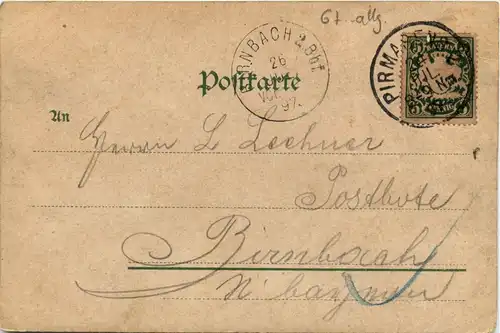 67 allg.
BIRNBACH a. Bhf
26
97.
PIRMASENS
Postkarte
An
Herrn L Lechner
Postbote
Birnbach
N'bayern